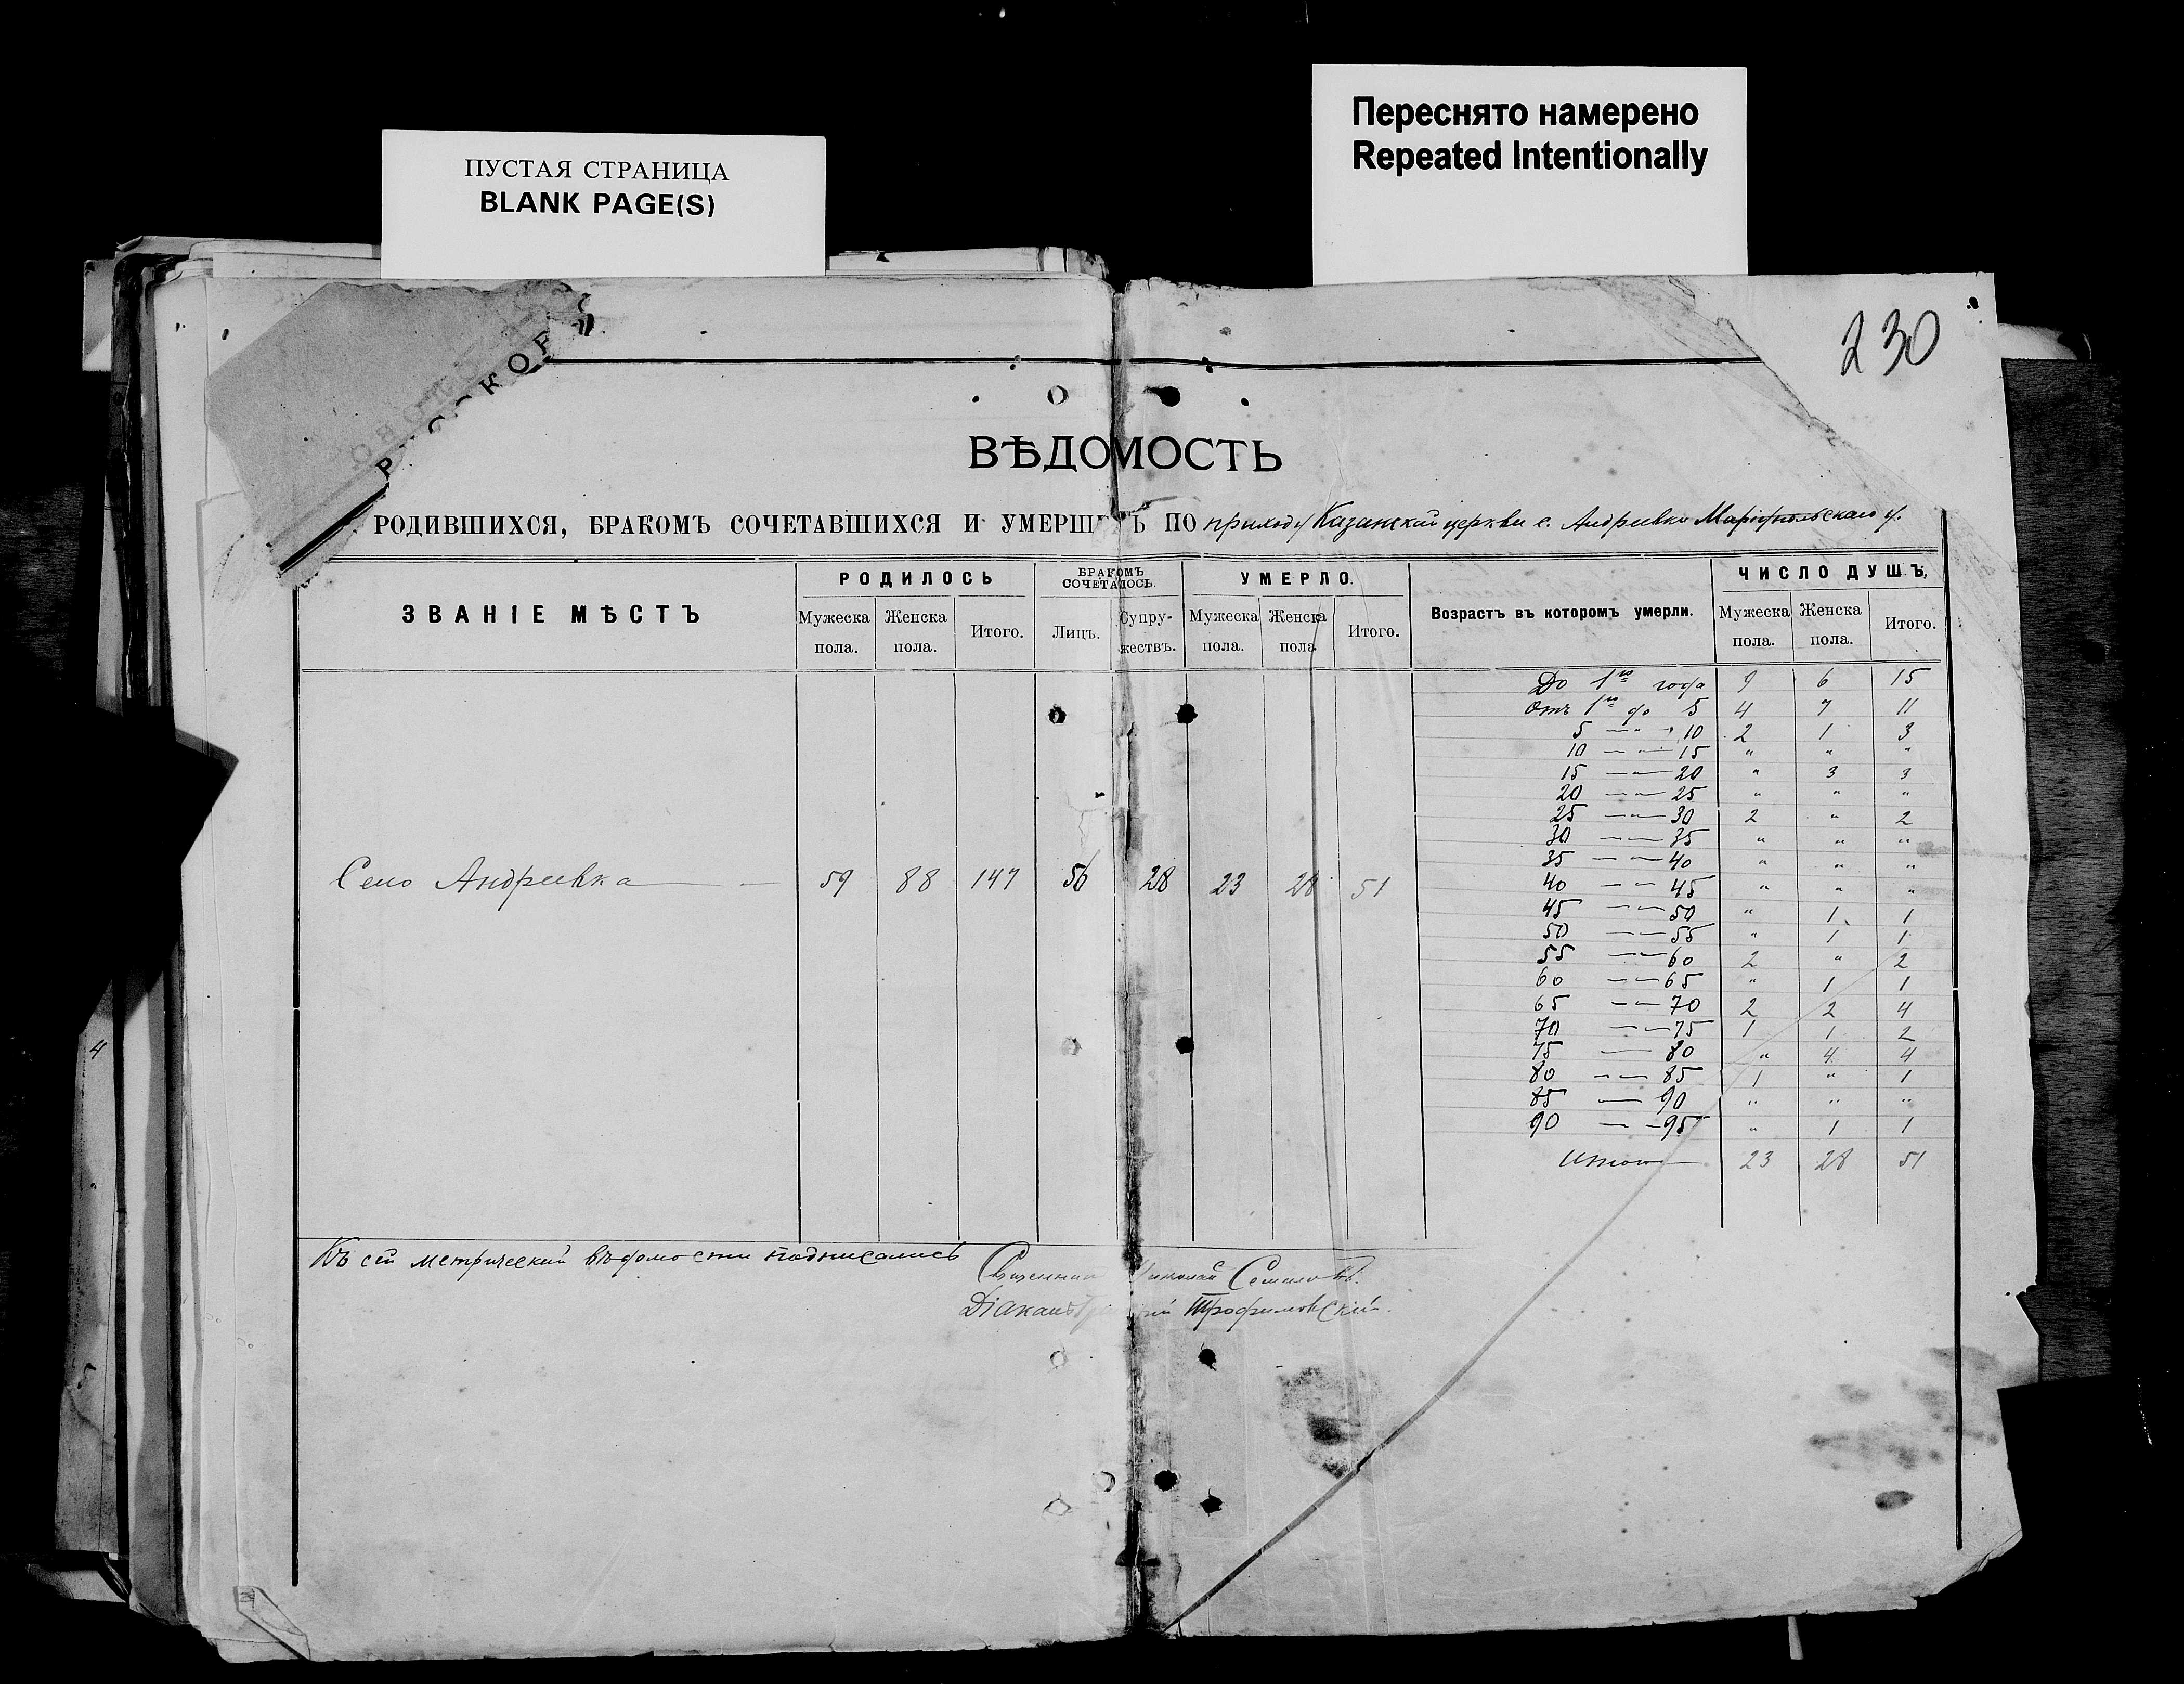 Переснято намерено
Repeated Intentionally
ПУСТАЯ СТРАНИЦА
BLANK PAGE(S)
230
ВѢДОМОСТЬ
РОДИВШИХСЯ, БРАКОМЪ СОЧЕТАВШИХСЯ И УМЕРШ Ъ ПО приходу Казанской церкви с. Андреевки Маріупольскаго у.
ЗВАНІЕ МѢСТЪ РОДИЛОСЬ БРАКОМЪ СОЧЕТАЛОСЬ. УМЕРЛО. Возрастъ въ которомъ умерли. ЧИСЛО ДУШЪ,
Мужеска пола. Женска пола. Итого. Лицъ. Супружествъ. Мужеска пола. Женска пола Итого. Мужеска пола. Женска пола. Итого.
До 1го года 9 6 15
Отъ 1го до 5 4 7 11
5 — " — 10 2 1 3
10 — " — 15 " " "
15 — " — 20 " 3 3
20 — " — 25 " " "
25 — " — 30 2 " 2
30 — — 35 " " "
35 — — 40 " " "
Село Андреевка — 59 88 147 56 28 23 28 51
40 — — 45 " " "
45 — — 50 " 1 1
50 — — 55 " 1 1
55 — — 60 2 " 2
60 — — 65 " 1 1
65 — — 70 2 2 4
70 — — 75 1 1 2
75 — 80 " 4 4
80 — — 85 1 " 1
85 — 90 " " "
90 — — 95 " 1 1
Итого — 23 28 51
Къ сей метрической вѣдомости подписались
Священник Николай
Діаконъ Трофимовскій.
4
5